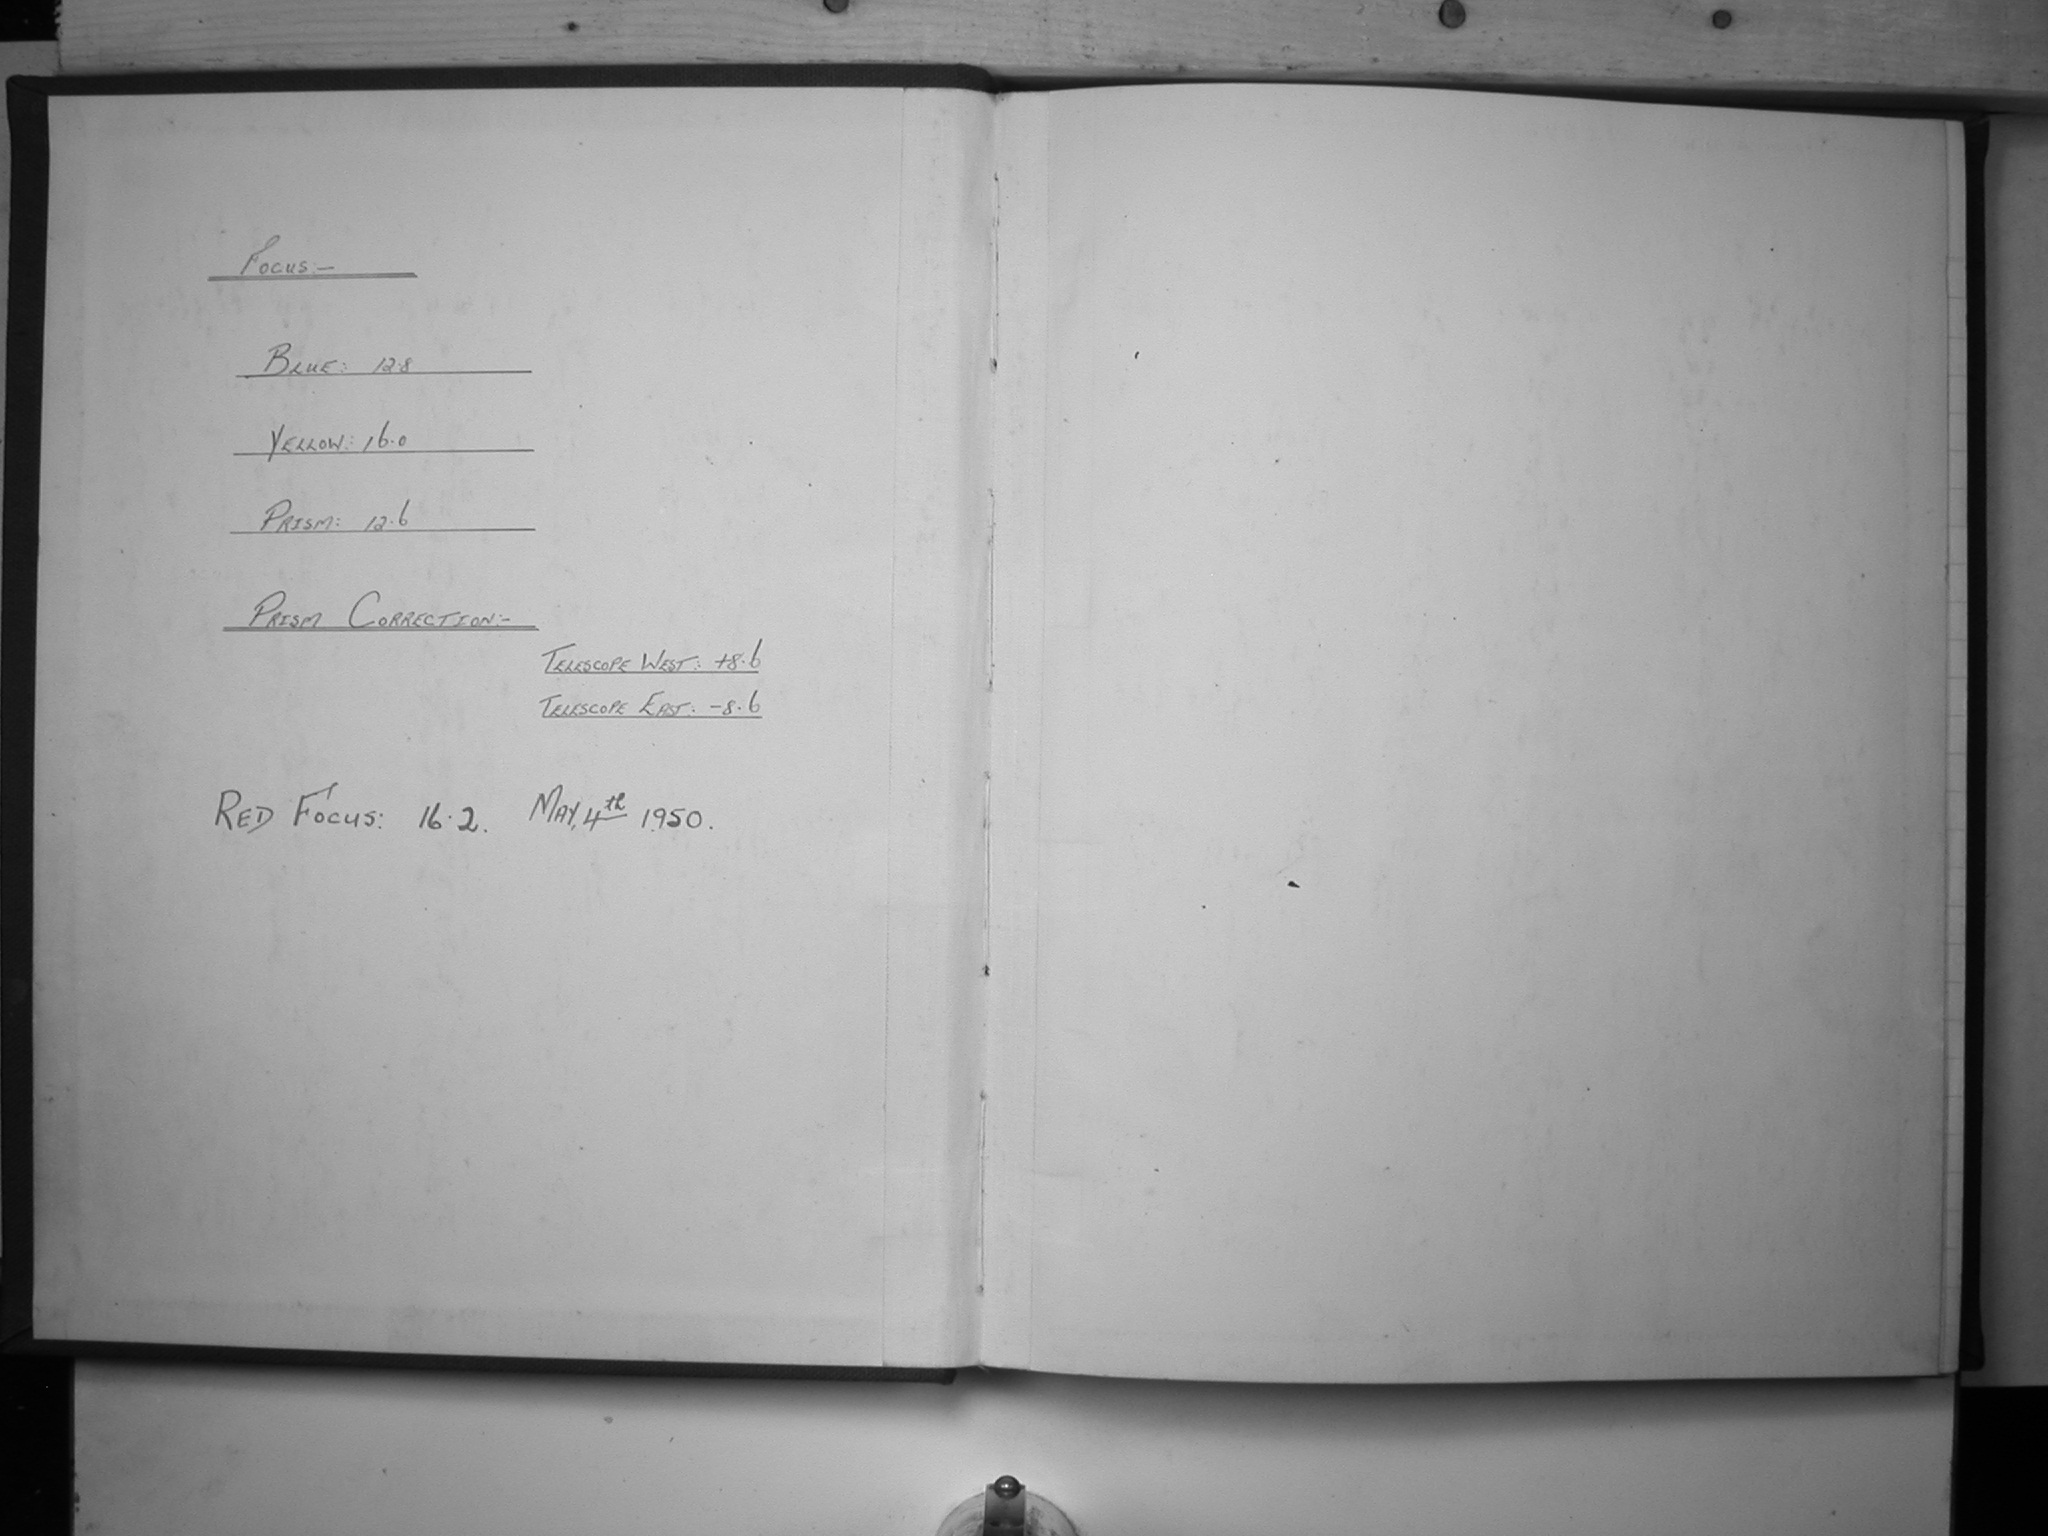 Focus:-
Blue: 12.8
Yellow: 16.0
Prism: 12.6
Prism Correction:-
Telescope West: +8.6
Telescope East: -8.6
Red Focus: 16.2. May, 4th 1950.